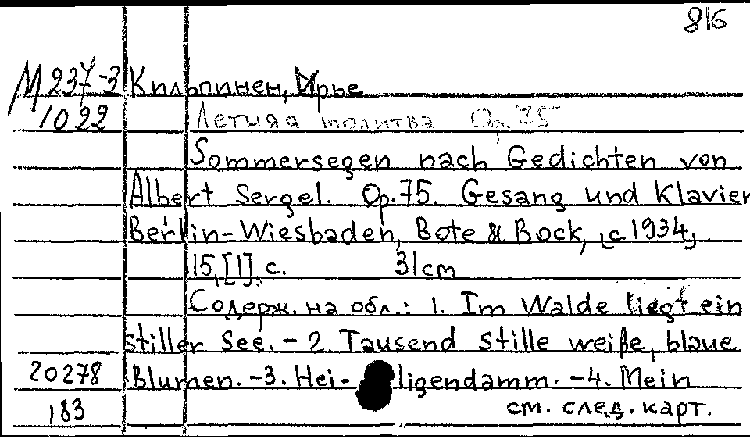 816
М 237-3 Кильпинен, Ирье
1022 Летняя молитва Op. 75
Sommersegen nach Gedichten von
Albert Sergel. Op. 75. Gesang und Klavier
Berlin-Wiesbaden, Bote & Bock, [c 1934]
15, [1] с. 31 cm
Содерж. на обл.: 1. Im Walde liegt ein
stiller See. - 2 Tausend stille weiße, blaue
20278 Blumen. - 3. Hei- ligendamm. - 4. Mein
183 см. след. карт.